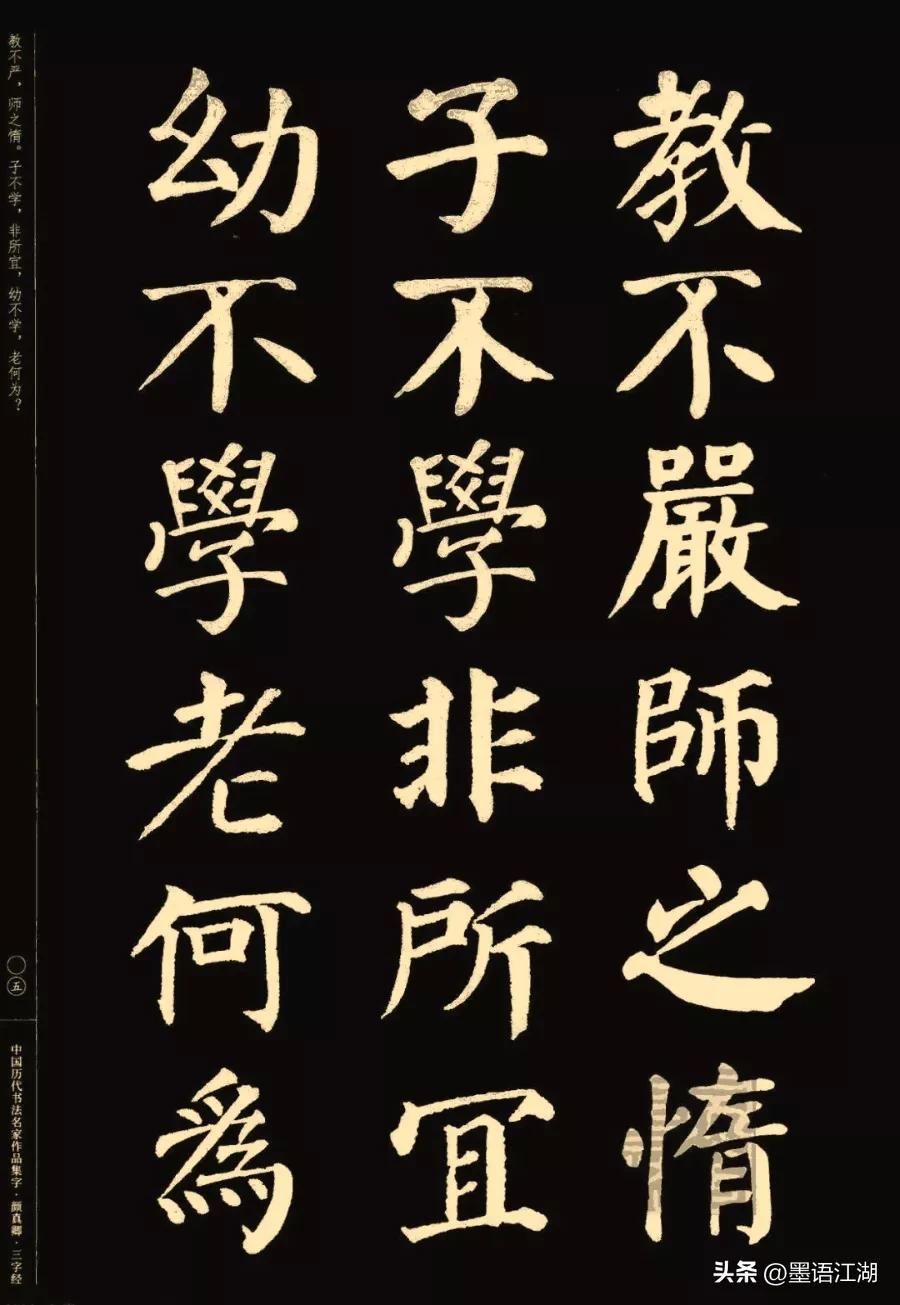 教不嚴師之惰
子不學非所宜
幼不學老何為
教不严，师之惰。子不学，非所宜，幼不学，老何为？
〇五
中国历代书法名家作品集字·颜真卿·三字经
头条 @墨语江湖